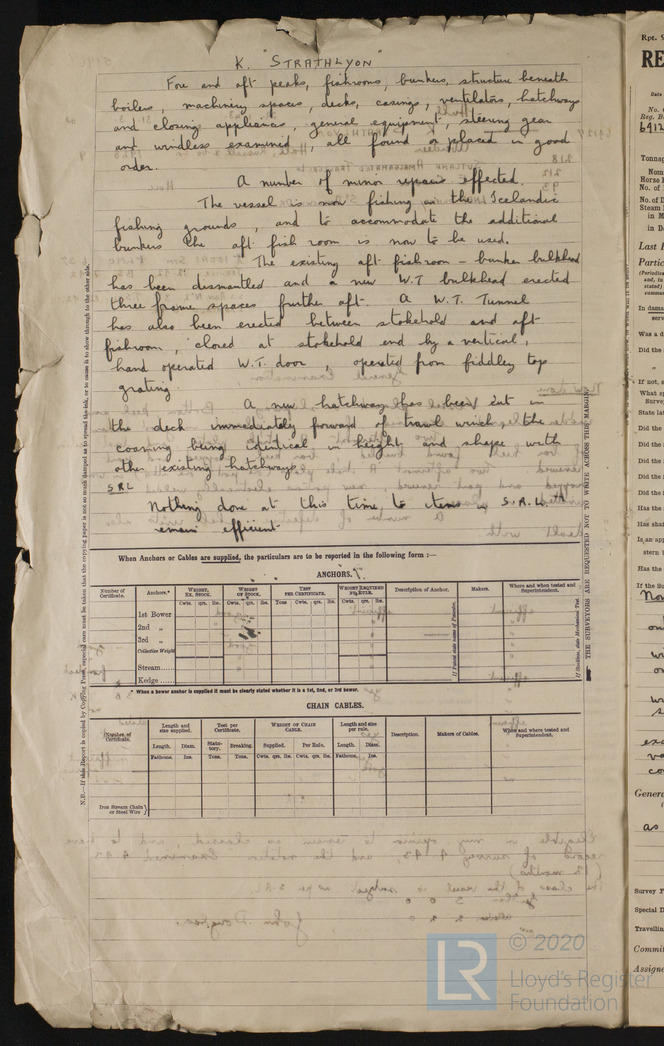 K. "STRATHLYON"
Fore and aft peaks, fishrooms, bunkers, structure beneath
boilers, machinery spaces, decks, casings, ventilators, hatchways
and closing appliances, general equipment, steering gear
and windlass examined, all found or placed in good
order.
A number of minor repairs effected.
The vessel is now fishing in the Icelandic
fishing grounds, and to accommodate the additional
bunkers the aft fish room is now to be used.
The existing aft fishroom - bunker bulkhead
has been dismantled and a new W.T bulkhead erected
three frame spaces further aft. A W.T. Tunnel
has also been erected between stokehold and aft
fishroom, closed at stokehold end by a vertical,
hand operated W.T. door, operated from fiddley top
grating.
A new hatchway has been cut in
the deck immediately forward of trawl winch, the
coaming being identical in height and shape with
other existing hatchways.
S.R.L
Nothing done at this time to items in S.R.L.
remain efficient.
When Anchors or Cables are supplied, the particulars are to be reported in the following form :—
ANCHORS.
Number of Certificate. Anchors.* WEIGHT, EX. STOCK. WEIGHT OF STOCK. TEST PER CERTIFICATE. WEIGHT REQUIRED PER RULE. Description of Anchor. Makers. Where and when tested and Superintendent.
Cwts. qrs. lbs. Cwts. qrs. lbs. Tons Cwts. qrs. lbs. Cwts. qrs. lbs.
1st Bower
2nd "
3rd "
Collective Weight
Stream
Kedge
* When a bower anchor is supplied it must be clearly stated whether it is a 1st, 2nd, or 3rd bower.
CHAIN CABLES.
Number of Certificate. Length and size supplied. Test per Certificate. WEIGHT OF CHAIN CABLE. Length and size per rule. Description. Makers of Cables. When and where tested and Superintendent.
Length. Diam. Statutory. Breaking. Supplied. Per Rule. Length. Diam.
Fathoms. Ins. Tons. Tons. Cwts. qrs. lbs. Cwts. qrs. lbs. Fathoms. Ins.
Iron Stream Chain or Steel Wire
THE SURVEYORS ARE REQUESTED NOT TO WRITE ACROSS THIS MARGIN
© 2020
Lloyd's Register
Foundation